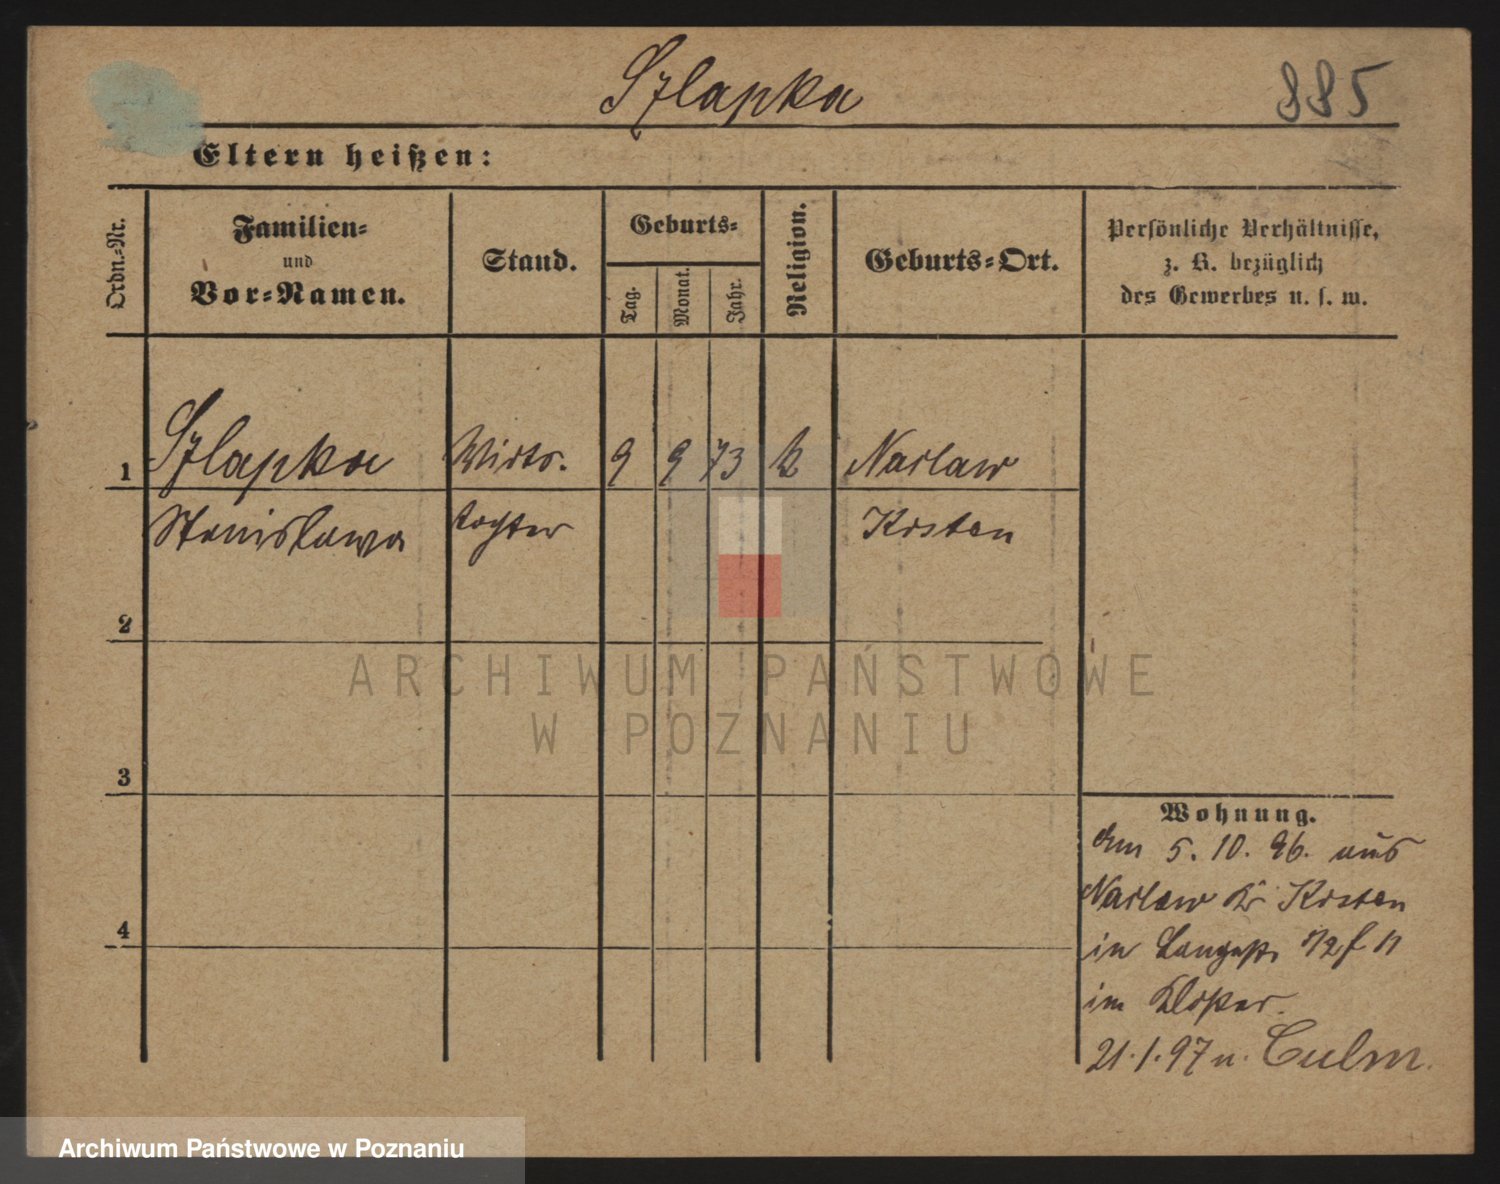 Szlapka
885
Eltern heißen:
Ordn.-Nr.
Familien-
und
Vor-Namen.
Stand.
Geburts-
Tag.
Monat.
Jahr.
Religion.
Geburts-Ort.
Persönliche Verhältnisse,
z. B. bezüglich
des Gewerbes u. s. w.
1
Szlapka Wirts. 9 9 73 k Narlaw
Stanisława tochter Kosten
2
ARCHIWUM PAŃSTWOWE
W POZNANIU
3
4
Wohnung.
5. 10. 96. aus
Narlaw Kr Kosten
in
im
21.1.97 n. Culm.
Archiwum Państwowe w Poznaniu